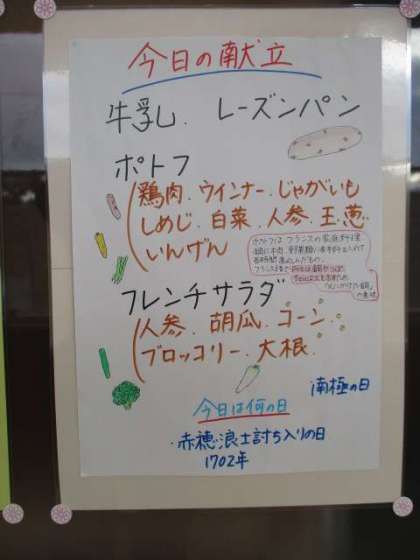 今日の献立
牛乳. レーズンパン
ポトフ
鶏肉. ウインナー. じゃがいも
しめじ. 白菜. 人参. 玉葱.
いんげん
ポトフは フランスの家庭料理
鍋に
長時間煮込んだもの。
フランス語で
の意味
フレンチサラダ
人参. 胡瓜. コーン.
ブロッコリー. 大根.
南極の日
今日は何の日
赤穂浪士討ち入りの日
1702年